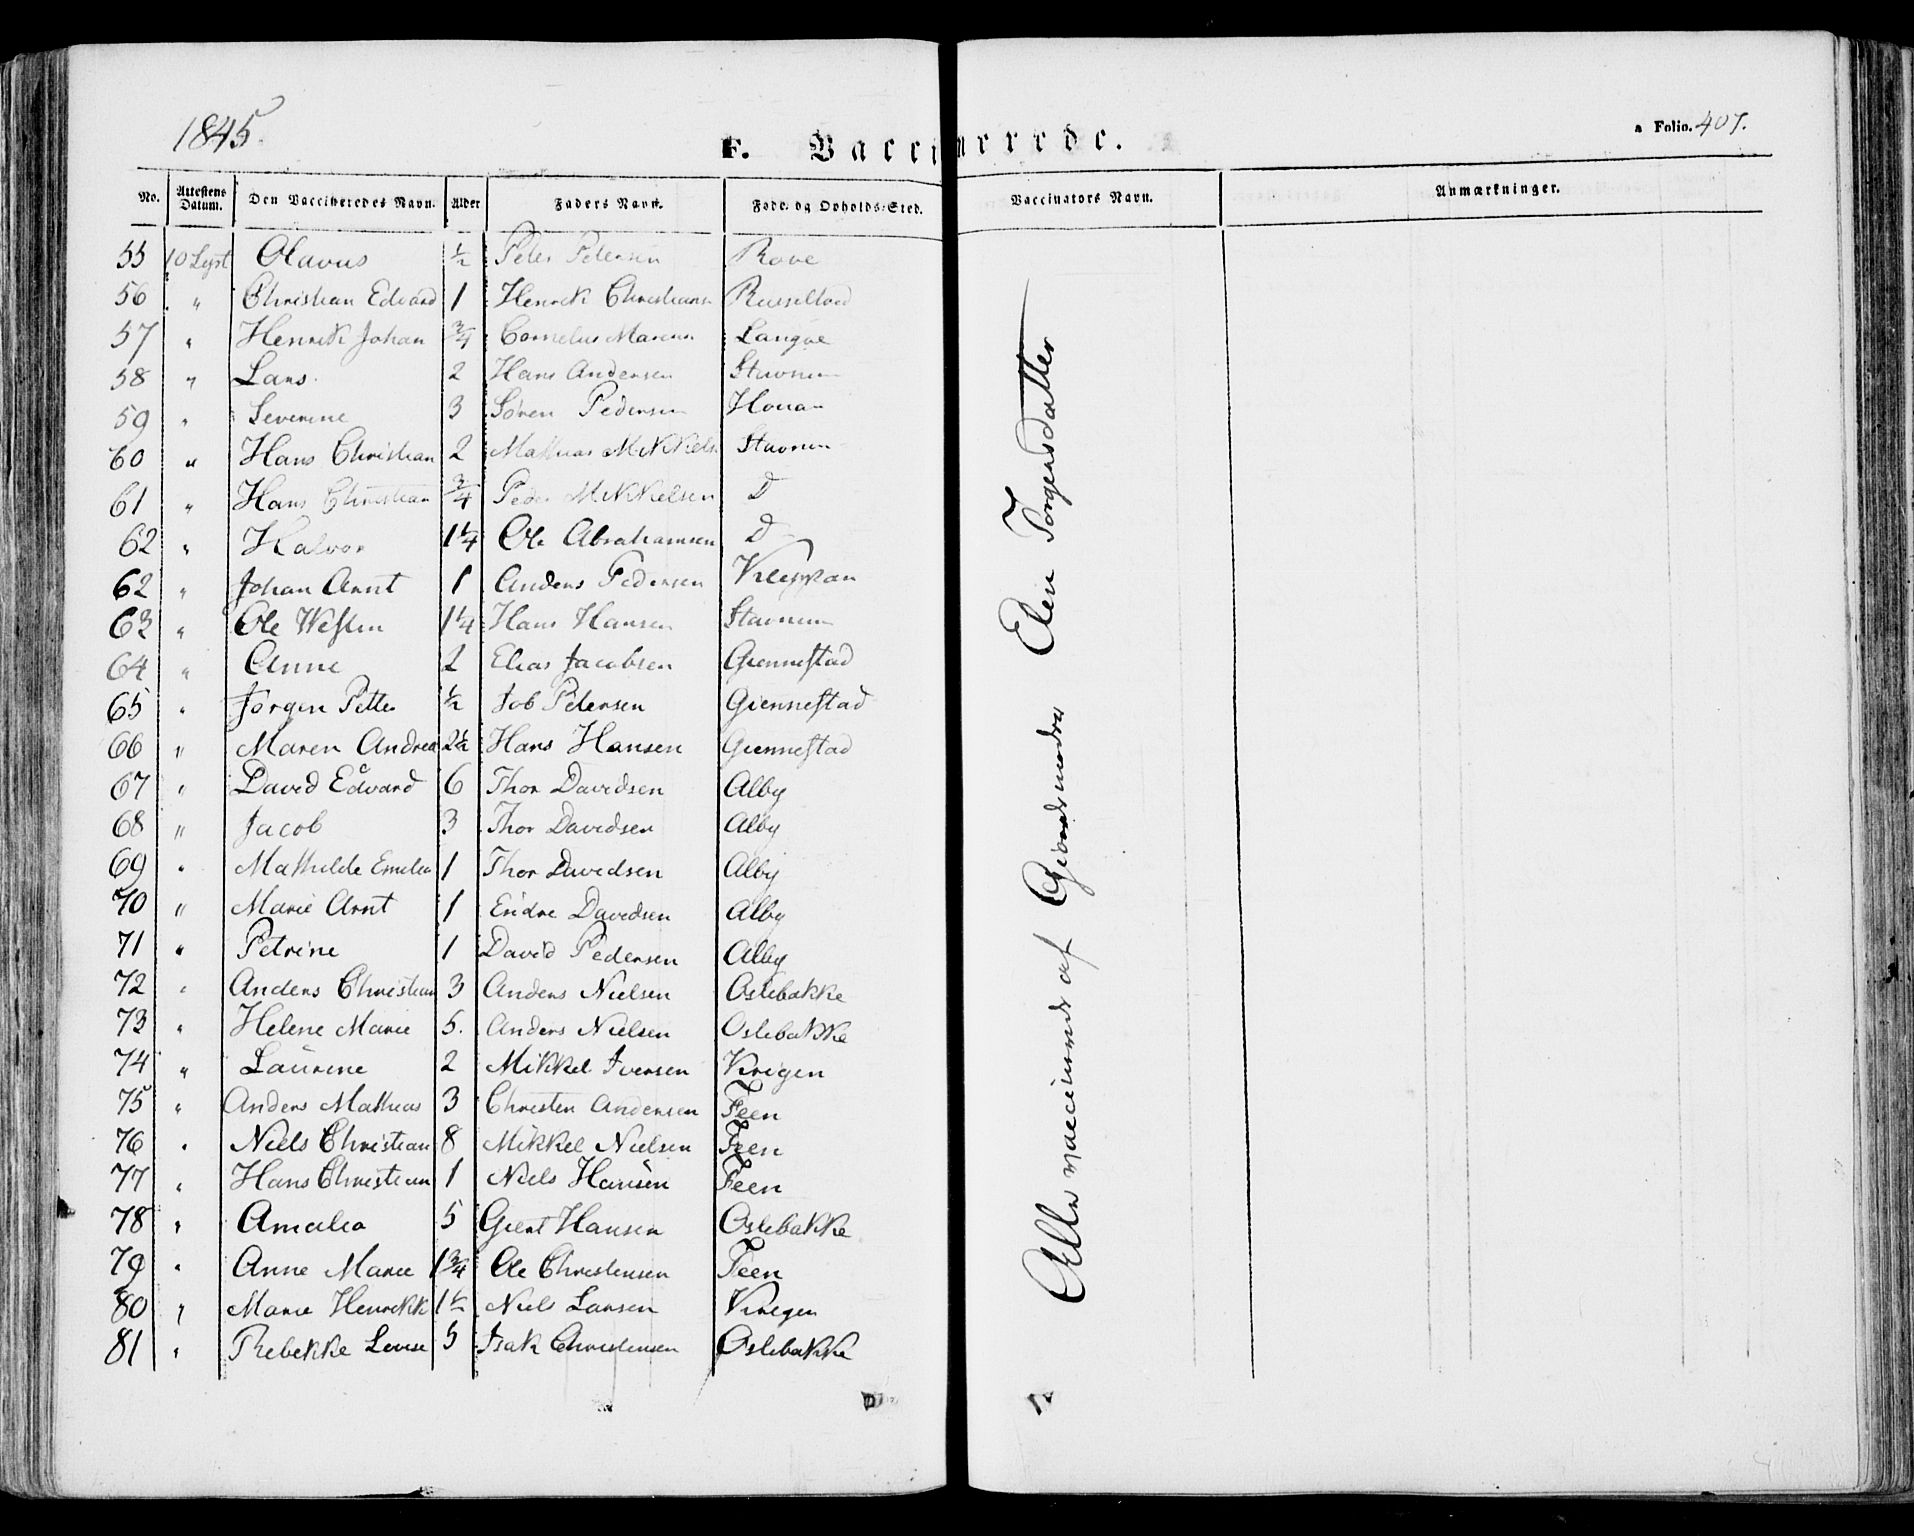 1845.
F. Vaccinerede.
a Folio. 407.
No. Attestens Datum. Den Vaccineredes Navn. Alder Faders Navn. Føde- og Opholds-Sted. Vaccinators Navn. Anmærkninger.
55 10 Sept Olavus ½ Peter Petersen Rove
56 " Christian Edvard 1 Henrik Christians
57 " Henrik Johan ¾ Cornelius Langøe
58 " Lars 2 Hans Andersen Stavnum
59 " Severine 3 Søren Pedersen Houan
60 " Hans Christian 2 Mathias Mikkels Stavnum
61 " Hans Christian ¾ Peder Mikkelsen D
62 " Halvor 1¼ Ole Abrahamsen D
62 " Johan Arnt 1 Anders Pedersen Kleppan
63 " Ole 1¼ Hans Hansen Stavnum
64 " Anne 2 Elias Jacobsen Giennestad
65 " Jørgen Petter ½ Job Petersen Giennestad
66 " Maren Andrea 2½ Hans Hansen Giennestad
67 " David Edvard 6 Thor Davidsen Alby
68 " Jacob 3 Thor Davidsen Alby
69 " Mathilde Emelia 1 Thor Davidsen Alby
70 " Marie Arnt 1 Endre Davidsen Alby
71 " Petrine 1 David Pedersen Alby
72 " Anders Christian 3 Anders Nielsen Oslebakke
73 " Helene Marie 5. Anders Nielsen Oslebakke
74 " Laurine 2 Mikkel Iversen Krigen
75 " Anders Mathias 3 Christen Andersen Feen
76 " Niels Christian 8 Mikkel Nielsen Feen
77 " Hans Christian 1 Niels Hansen Feen
78 " Amalia 5 Giert Hansen Oslebakke
79 " Anne Marie 1¾ Ole Christensen Feen
80 " Marie Henrikk 1½ Niels Larsen Krigen
81 " Rebekke Lovise 5 Isak Christensen Oslebakke
Alle vaccinerede af Giordmoder Elen Torgersdatter